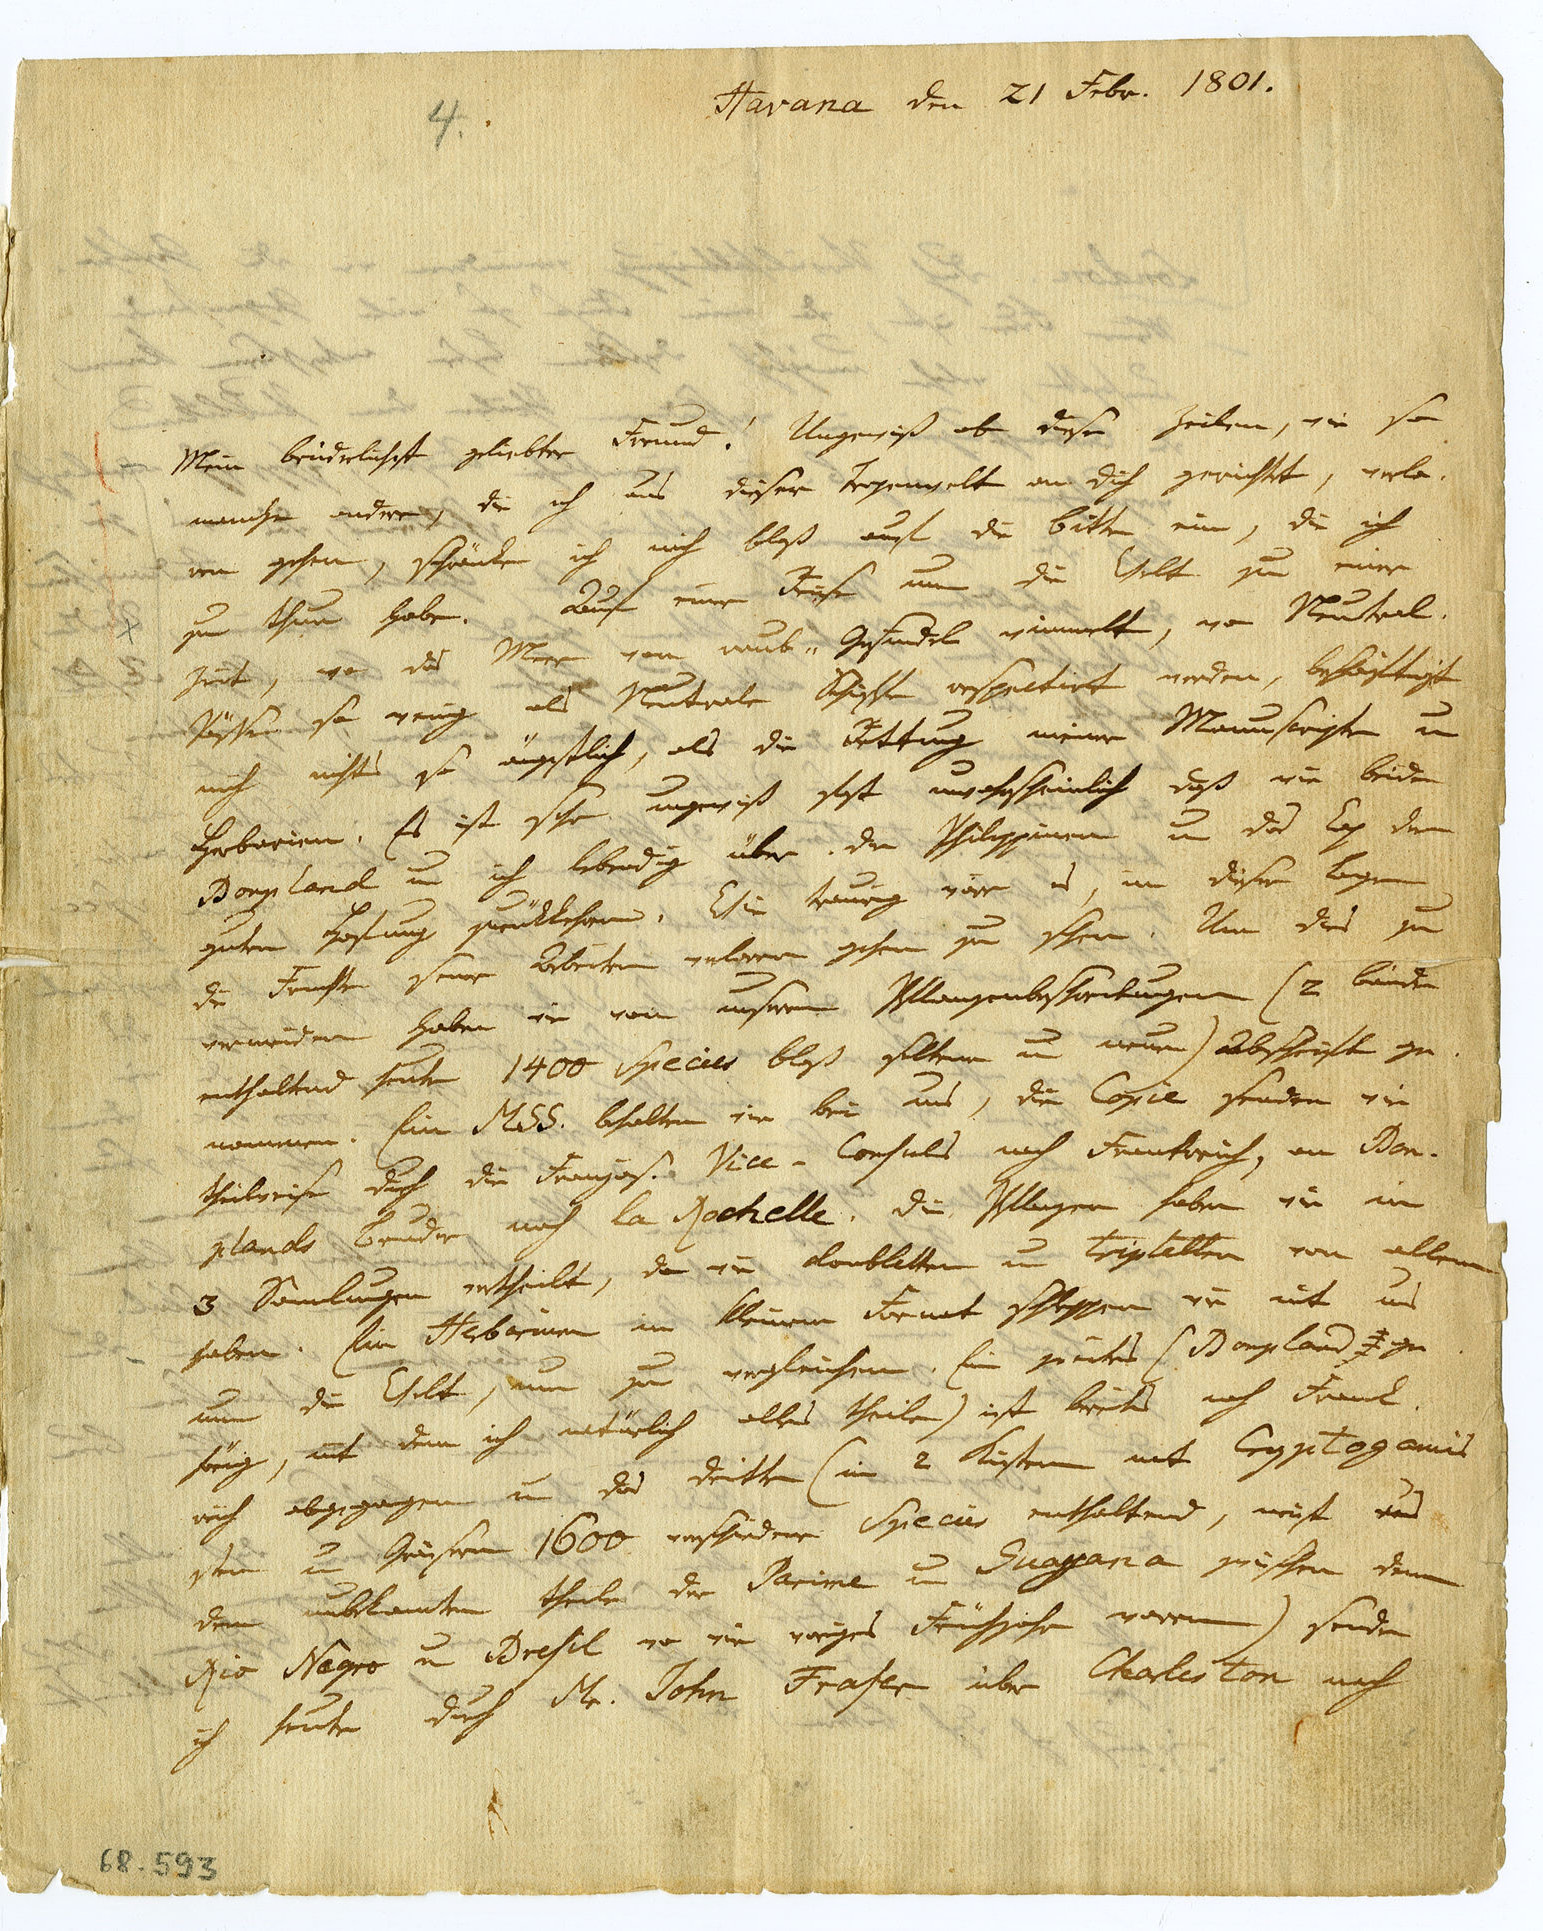 4.
Havana den 21 Febr. 1801.
Mein brüderlichst geliebter Freund! Ungewiß ob diese Zeilen, wie so
manche andere, die ich aus dieser Tropenwelt an dich gerichtet, verlo-
ren gehen, schränke ich mich bloß auf die Bitte ein, die ich
zu thun habe. Auf einer Reise um die Welt zu einer
Zeit, wo das Meer von Raub-Gesindel wimmelt, wo Neutral-
Pässe so wenig als Neutrale Schiffe respectirt werden, beschäftigt
mich nichts so ängstlich, als die Rettung meiner Manuscripte u
Herbarien. Es ist sehr ungewiß fast unwahrscheinlich daß wir beide
Bonpland u ich lebendig über die Philippinen u das Cap der
guten Hofnung zurükkehren. Wie traurig wäre es, in dieser Lage
die Früchte seiner Arbeiten verloren gehen zu sehen. Um dies zu
vermeiden haben wir von unseren Pflanzenbeschreibungen (2 Bände
enthaltend heute 1400 Species bloß seltene u neuen) Abschrift ge-
nommen. Ein MSS. behalten wir bei uns, die Copie senden wir
theilweise durch die Französ. Vice-Consuls nach Frankreich, an Bon-
plands Bruder nach la Rochelle. Die Pflanzen haben wir in
3 Samlungen vertheilt, da wir doubletten u tripletten von allem
haben. Ein Herbarium in kleinem Format schleppen wir mit uns
um die Welt, um zu vergleichen. Ein zweites (Bonpland ge-
hörig, mit dem ich natürlich alles theile) ist bereits nach Frank-
reich abgegangen u das dritte (in 2 Kisten mit Cryptogamis
u Gräsern 1600 verschiedene Species enthaltend, meist aus
dem unbekannten Theile der Parime u Guayana zwischen dem
Rio Negro u Bresil wo wir voriges Frühjahr waren) sende
ich heute durch Mr. John Fraser über Charleston nach
68.593